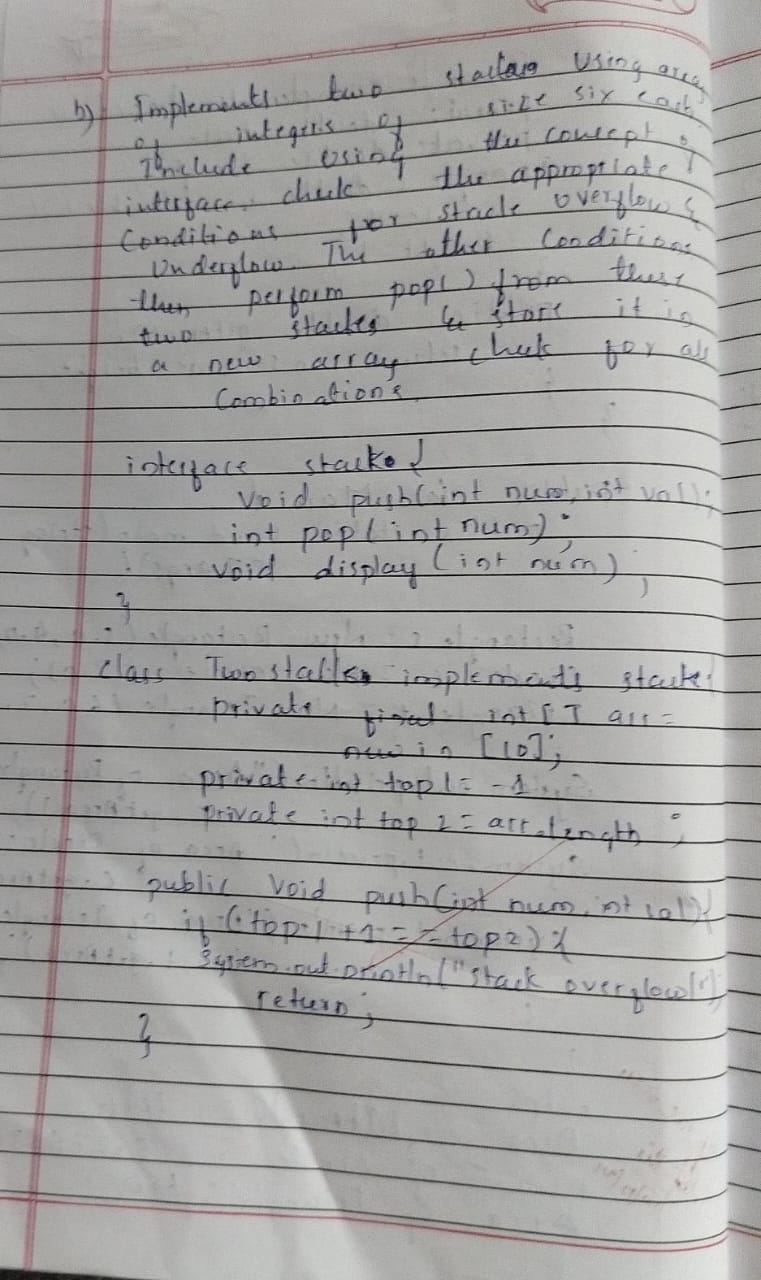 b) Implements two stacks using array
of integers of size six each
Include using the concept of
interface, check the appropriate
Conditions for stack overflow &
Underflow. The other Conditions
then perform pop() from these
two stacks & store it in
a new array check for all
Combinations
interface stack {
void push(int num, int val);
int pop(int num);
void display(int num);
}
class Two stacks implements stack
private final int [] arr =
new in [10];
private int top1 = -1
private int top 2 = arr.length ;
public void push(int num, int val){
if (top 1 +1 = = top2) {
System.out.println("stack overflow!")
return;
}